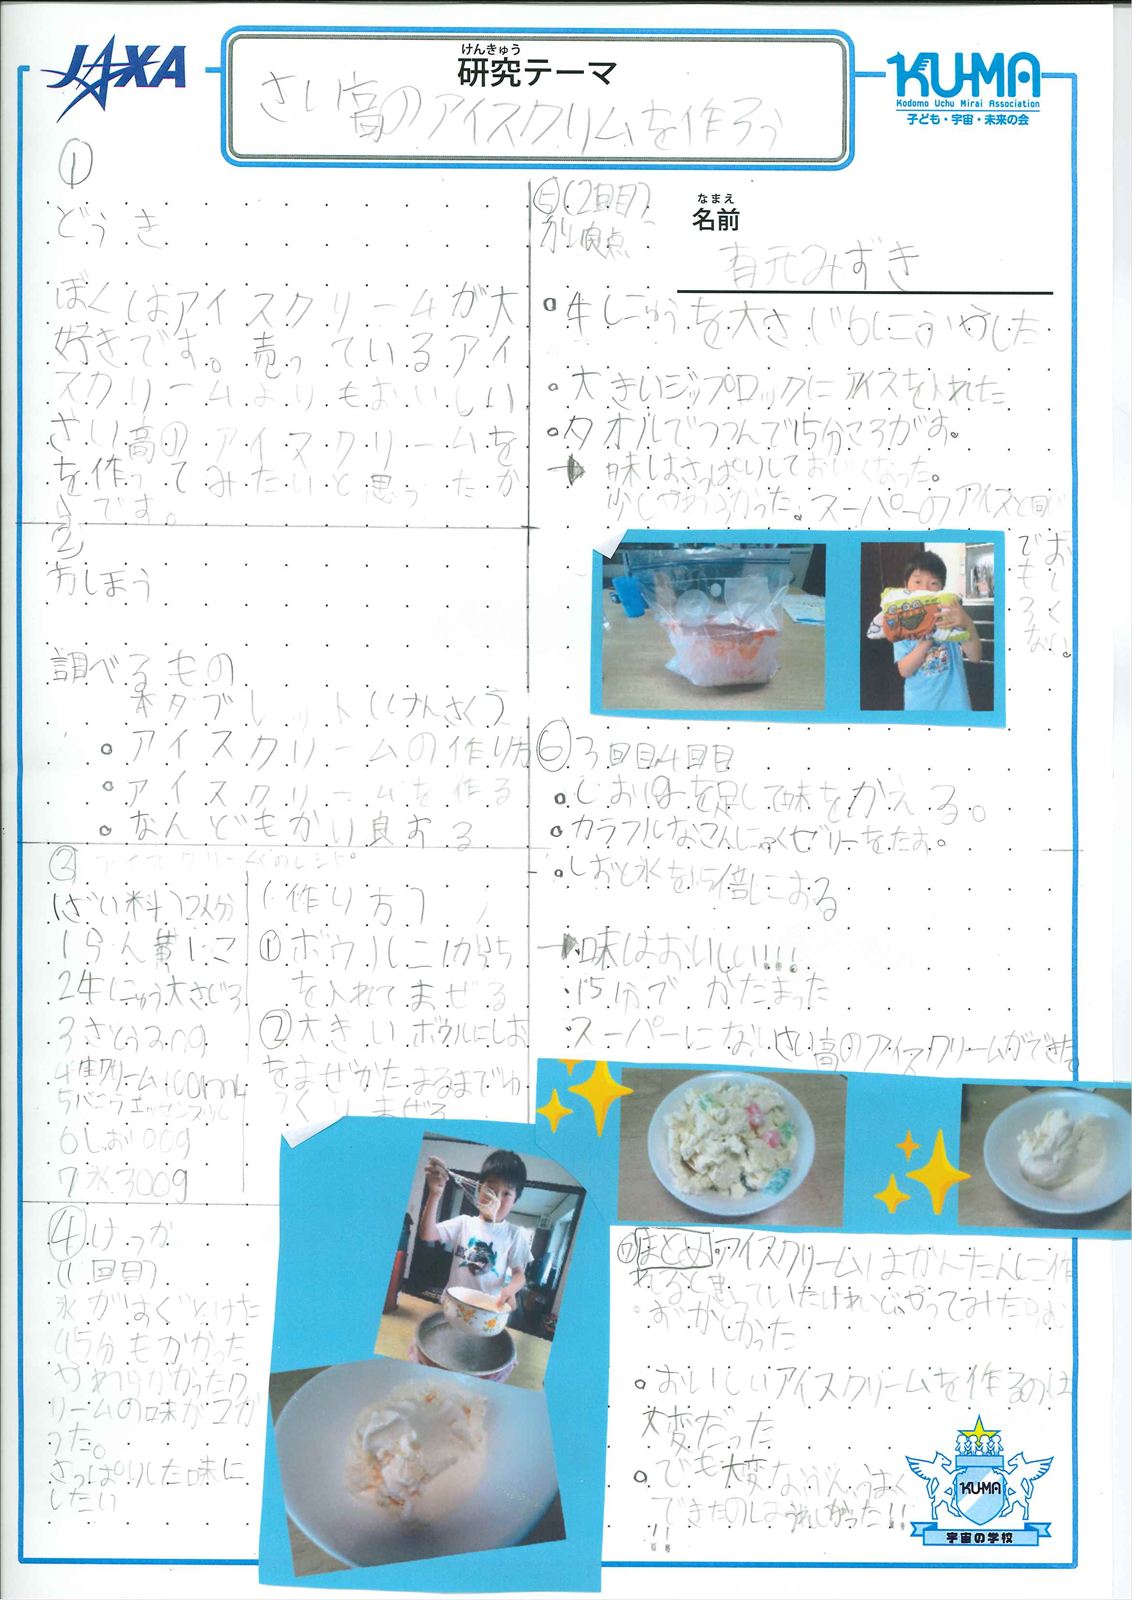 JAXA
けんきゅう
研究テーマ
さい高のアイスクリムを作ろう
KU-MA
Kodomo Uchu Mirai Association
子ども・宇宙・未来の会
なまえ
名前
有元みずき
①
どうき
ぼくはアイスクリームが大
好きです。売っているアイ
スクリームよりもおいしい
さい高のアイスクリームを
を作ってみたいと思ったか
らです。
②
方しほう
調べるもの
本タブレット(けんさく)
アイスクリームの作り方
アイスクリームを作る
なんどもかい良する
③アイスクリームのレシピ
(ざい料)2人分
1らん黄1こ
2牛にゅう大さじ3
3さとう30g
4生クリーム100ml
5バニラエッセンス少し
6しお100g
7氷300g
(作り方)
①ボウルに1から5
を入れてまぜる
②大きいボウルにしお
をまぜかたまるまでゆ
っくりまぜる
④けっか
(1回目)
氷がすぐとけた
45分もかかった
やわらかかったク
リームの味がつよか
った。
さっぱりした味に
したい
⑤(2回目)
かい良点
牛にゅうを大さじ6にふやした
大きいジップロックにアイスを入れた
タオルでつつんで15分ころがす。
→味はさっぱりしておいしくなった。
少しやわらかかった。スーパーのアイスと同じ
でおもしろくない。
⑥3回目4回目
しおを足して味をかえる。
カラフルなこんにゃくゼリーをたす。
しおと氷を1.5倍にする
→味はおいしい!!!
15分でかたまった
スーパーにないさい高のアイスクリームができた。
⑦まとめ アイスクリームはかんたんに作
れると思っていたけれどやってみたらむ
ずかしかった
おいしいアイスクリームを作るのは
大変だった
でも大変なぶんうまく
できたのはうれしかった!!
!!
KU-MA
宇宙の学校